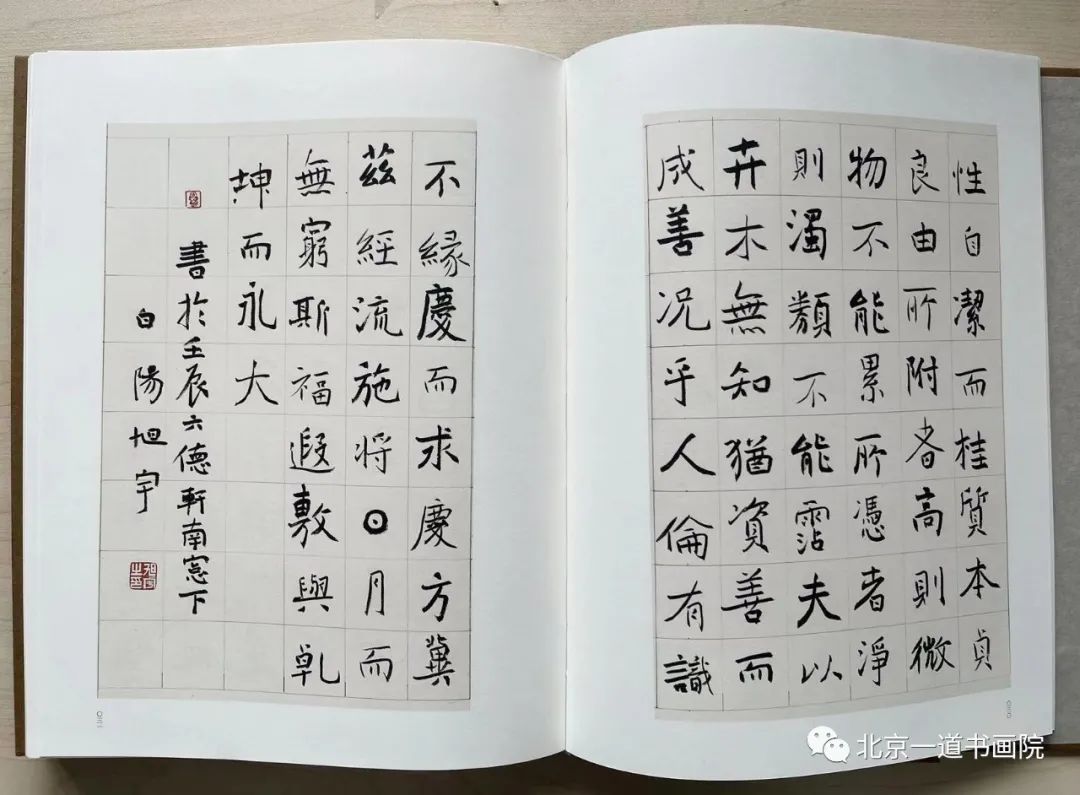 性自潔而桂質本貞
良由所附者高則微
物不能累所憑者淨
則濁類不能霑夫以
卉木無知猶資善而
成善況乎人倫有識
不緣慶而求慶方冀
茲經流施將日月而
無窮斯福遐敷與乾
坤而永大
書於壬辰六德軒南窓下
白陽旭宇
北京一道书画院